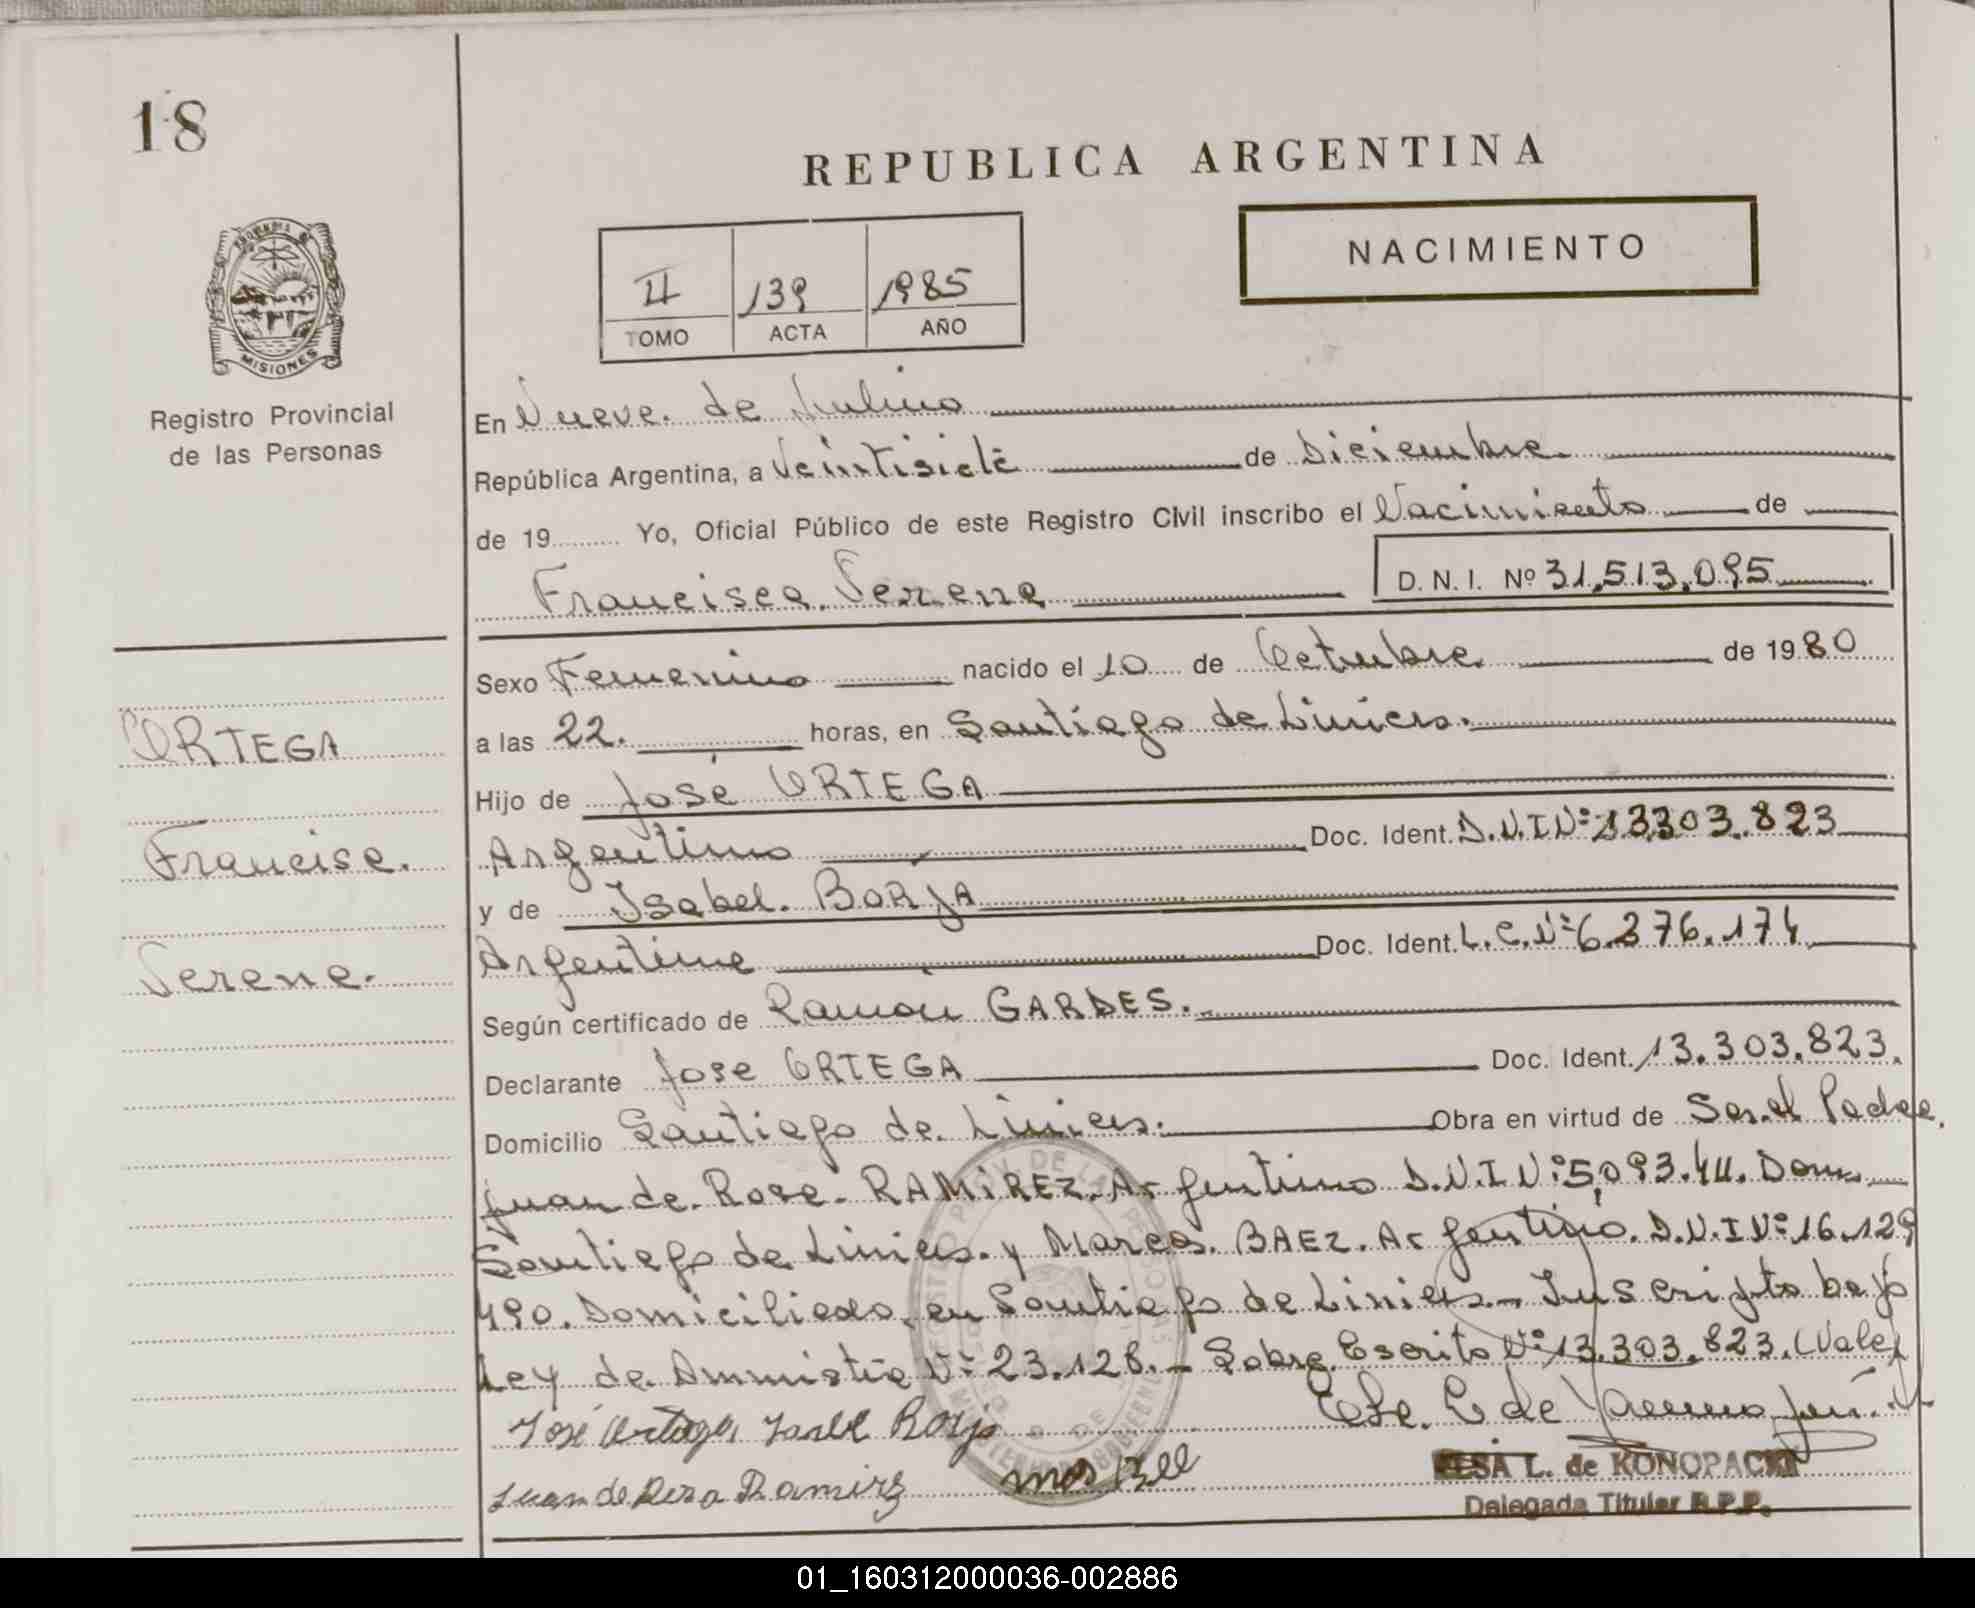 18
REPUBLICA ARGENTINA
NACIMIENTO
II 139 1985
TOMO ACTA AÑO
PROVINCIA DE
MISIONES
Registro Provincial
de las Personas
En Nueve de Julio
República Argentina, a Veintisiete de Diciembre
de 19 Yo, Oficial Público de este Registro Civil inscribo el Nacimiento de
Francisca Serena D.N.I. Nº 31.513.095
Sexo Femenino nacido el 10 de Octubre de 1980
ORTEGA
a las 22. horas, en Santiago de Liniers.
Hijo de José ORTEGA
Francisc.
Argentino Doc. Ident. D.N.I Nº 13303.823
y de Isabel. BORJA
Serene.
Argentina Doc. Ident. L.C. Nº 6.276.174
Según certificado de Ramon GARDES.
Declarante Jose ORTEGA Doc. Ident. 13.303.823.
Domicilio Santiago de Liniers. Obra en virtud de Ser el Padre.
Juan de Rosa RAMIREZ. Argentino D.N.I Nº 5,093. Dom.
Santiago de Liniers. y Marcos. BAEZ. Argentino. D.N.I Nº 16.129
490. Domiciliado en Santiago de Liniers - Inscripto bajo
Ley de Amnistia Nº 23.128. - Sobre Escrito Nº 13.303.823. (Vale)
José Ortega Isabel Borja
Juan de Rosa Ramirez
ELSA L. de KONOPACKI
Delegada Titular R.P.P.
01_160312000036-002886